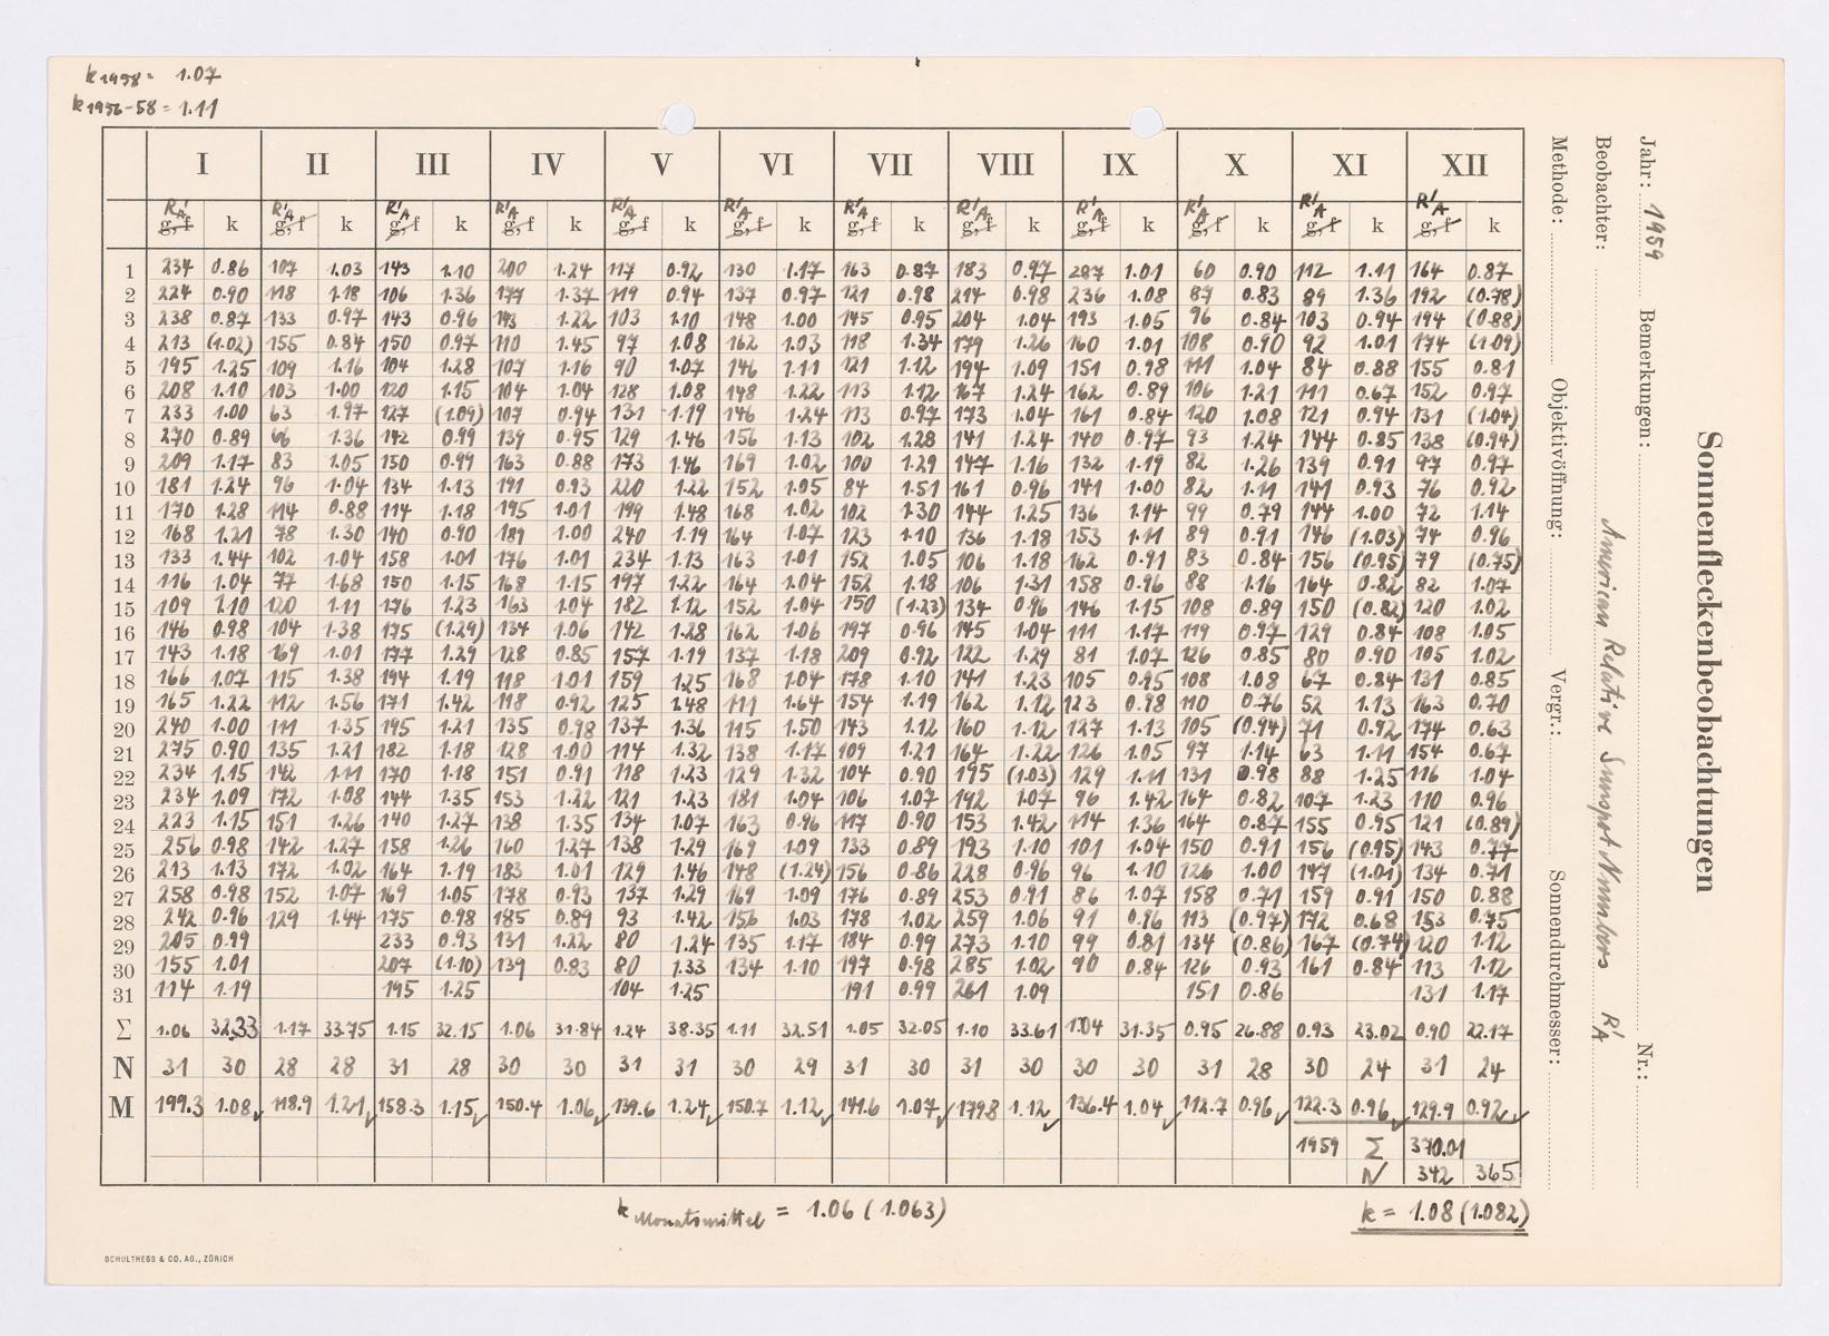 k 1958 = 1.07
k 1956-58 = 1.11
I II III IV V VI VII VIII IX X XI XII
R'A g,f k R'A g,f k R'A g,f k R'A g,f k R'A g,f k R'A g,f k R'A g,f k R'A g,f k R'A g,f k R'A g,f k R'A g,f k R'A g,f k
1 234 0.86 107 1.03 143 1.10 200 1.24 117 0.92 130 1.17 163 0.87 183 0.97 207 1.01 60 0.90 112 1.11 164 0.87
2 224 0.90 118 1.18 106 1.36 177 1.37 119 0.94 137 0.97 121 0.98 214 0.98 236 1.08 87 0.83 89 1.36 192 (0.78)
3 238 0.87 133 0.97 143 0.96 143 1.22 103 1.10 148 1.00 145 0.95 204 1.04 193 1.05 96 0.84 103 0.94 194 (0.88)
4 213 (1.02) 155 0.84 150 0.97 110 1.45 97 1.08 162 1.03 118 1.34 179 1.26 160 1.01 108 0.90 92 1.01 174 (1.09)
5 195 1.25 109 1.16 104 1.28 107 1.16 90 1.07 146 1.11 121 1.12 194 1.09 151 0.98 111 1.04 84 0.88 155 0.81
6 208 1.10 103 1.00 120 1.15 104 1.04 128 1.08 148 1.22 113 1.12 167 1.24 162 0.89 106 1.21 111 0.67 152 0.97
7 233 1.00 63 1.97 127 (1.09) 107 0.94 131 1.19 146 1.24 113 0.97 173 1.04 161 0.84 120 1.08 121 0.94 131 (1.04)
8 270 0.89 66 1.36 142 0.99 139 0.95 129 1.46 156 1.13 102 1.28 141 1.24 140 0.97 93 1.24 144 0.85 138 (0.94)
9 209 1.17 83 1.05 150 0.99 163 0.88 173 1.46 169 1.02 100 1.29 147 1.16 132 1.19 82 1.26 139 0.91 97 0.97
10 181 1.24 96 1.04 134 1.13 191 0.93 220 1.22 152 1.05 84 1.51 161 0.96 141 1.00 82 1.11 141 0.93 76 0.92
11 170 1.28 114 0.88 114 1.18 195 1.01 199 1.48 168 1.02 102 1.30 144 1.25 136 1.14 99 0.79 144 1.00 72 1.14
12 168 1.21 78 1.30 140 0.90 189 1.00 240 1.19 164 1.07 123 1.10 136 1.18 153 1.11 89 0.91 146 (1.03) 74 0.96
13 133 1.44 102 1.04 158 1.01 176 1.01 234 1.13 163 1.01 152 1.05 106 1.18 162 0.91 83 0.84 156 (0.95) 79 (0.75)
14 116 1.04 77 1.68 150 1.15 168 1.15 197 1.22 164 1.04 152 1.18 106 1.31 158 0.96 88 1.16 164 0.82 82 1.07
15 109 1.10 120 1.11 176 1.23 163 1.04 182 1.12 152 1.04 150 (1.23) 134 0.96 146 1.15 108 0.89 150 (0.82) 120 1.02
16 146 0.98 104 1.38 175 (1.29) 134 1.06 142 1.28 162 1.06 197 0.96 145 1.04 111 1.17 119 0.97 129 0.84 108 1.05
17 143 1.18 169 1.01 177 1.29 128 0.85 157 1.19 137 1.18 209 0.92 122 1.29 81 1.07 126 0.85 80 0.90 105 1.02
18 166 1.07 115 1.38 194 1.19 118 1.01 159 1.25 168 1.04 178 1.10 141 1.23 105 0.95 108 1.08 67 0.84 131 0.85
19 165 1.22 112 1.56 171 1.42 118 0.92 125 1.48 111 1.64 154 1.19 162 1.12 123 0.98 110 0.76 52 1.13 163 0.70
20 240 1.00 111 1.35 195 1.21 135 0.98 137 1.36 115 1.50 143 1.12 160 1.12 127 1.13 105 (0.94) 71 0.92 174 0.63
21 275 0.90 135 1.21 182 1.18 128 1.00 114 1.32 138 1.17 109 1.21 164 1.22 126 1.05 97 1.14 63 1.11 154 0.67
22 234 1.15 142 1.11 170 1.18 151 0.91 118 1.23 129 1.32 104 0.90 195 (1.03) 129 1.11 131 0.98 88 1.25 116 1.04
23 234 1.09 172 1.08 144 1.35 153 1.22 121 1.23 181 1.04 106 1.07 192 1.07 96 1.42 164 0.82 107 1.23 110 0.96
24 223 1.15 151 1.26 140 1.27 138 1.35 134 1.07 163 0.96 117 0.90 153 1.42 114 1.36 164 0.87 155 0.95 121 (0.89)
25 256 0.98 142 1.27 158 1.26 160 1.27 138 1.29 169 1.09 133 0.89 193 1.10 101 1.04 150 0.91 156 (0.95) 143 0.77
26 213 1.13 172 1.02 164 1.19 183 1.01 129 1.46 148 (1.24) 156 0.86 228 0.96 96 1.10 126 1.00 147 (1.01) 134 0.71
27 258 0.98 152 1.07 169 1.05 178 0.93 137 1.29 169 1.09 176 0.89 253 0.91 86 1.07 158 0.71 159 0.91 150 0.88
28 242 0.96 129 1.44 175 0.98 185 0.89 93 1.42 156 1.03 178 1.02 259 1.06 91 0.86 113 (0.97) 172 0.68 153 0.75
29 205 0.99 233 0.93 131 1.22 80 1.24 135 1.17 184 0.99 273 1.10 99 0.81 134 (0.86) 167 (0.74) 120 1.12
30 155 1.01 207 (1.10) 139 0.83 80 1.33 134 1.10 197 0.98 285 1.02 90 0.84 126 0.93 161 0.84 113 1.12
31 114 1.19 195 1.25 104 1.25 191 0.99 261 1.09 151 0.86 131 1.17
Σ 1.06 32.33 1.17 33.75 1.15 32.15 1.06 31.84 1.24 38.35 1.11 32.51 1.05 32.05 1.10 33.61 1.04 31.35 0.95 26.88 0.93 23.02 0.90 22.17
N 31 30 28 28 31 28 30 30 31 31 30 29 31 30 31 30 30 30 31 28 30 24 31 24
M 199.3 1.08 118.9 1.21 158.3 1.15 150.4 1.06 139.6 1.24 150.7 1.12 141.6 1.07 179.8 1.12 136.4 1.04 112.7 0.96 122.3 0.96 129.9 0.92
1959 Σ 370.01
N 342 365
k Monatsmittel = 1.06 (1.063)
k = 1.08 (1.082)
SCHULTHESS & CO. AG., ZÜRICH
Sonnenfleckenbeobachtungen
Jahr: 1959 Bemerkungen: Nr.:
Beobachter: American Relative Sunspot Numbers R'A
Methode: Objektivöffnung: Vergr.: Sonnendurchmesser: